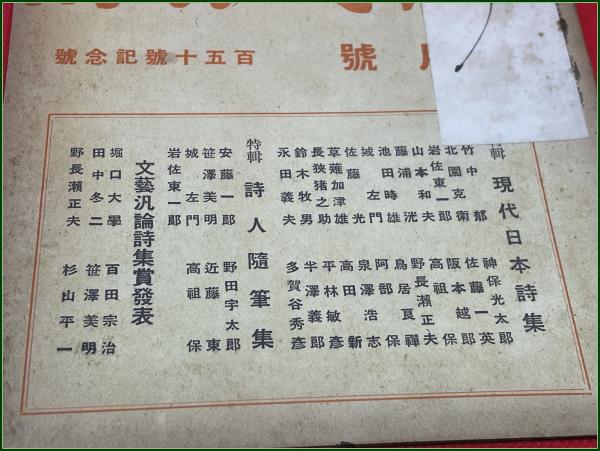 百五十號記念號
號
輯 現代日本詩集
竹中郁 神保光太郎
北園克衛 佐藤一英
岩佐東一郎 阪本越郎
山本和夫 高祖保
藤浦洸 野長瀨正夫
池田時雄 鳥居良禪
城左門 阿部保
佐藤光 泉澤浩志
草薙加津雄 高田新
長狹猪之助 平林敏彥
鈴木牧男 半澤義郎
永田義夫 多賀谷秀彥
特輯 詩人隨筆集
安藤一郎 野田宇太郎
笹澤美明 近藤東
城左門 高祖保
岩佐東一郎
文藝汎論詩集賞發表
堀口大學 百田宗治
田中冬二 笹澤美明
野長瀨正夫 杉山平一